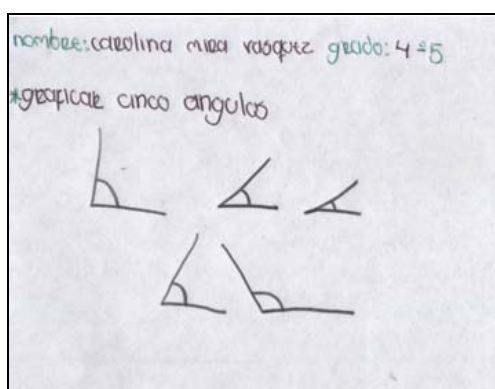 nombre: carolina mira vasquez grado: 4=5
*graficar cinco angulos